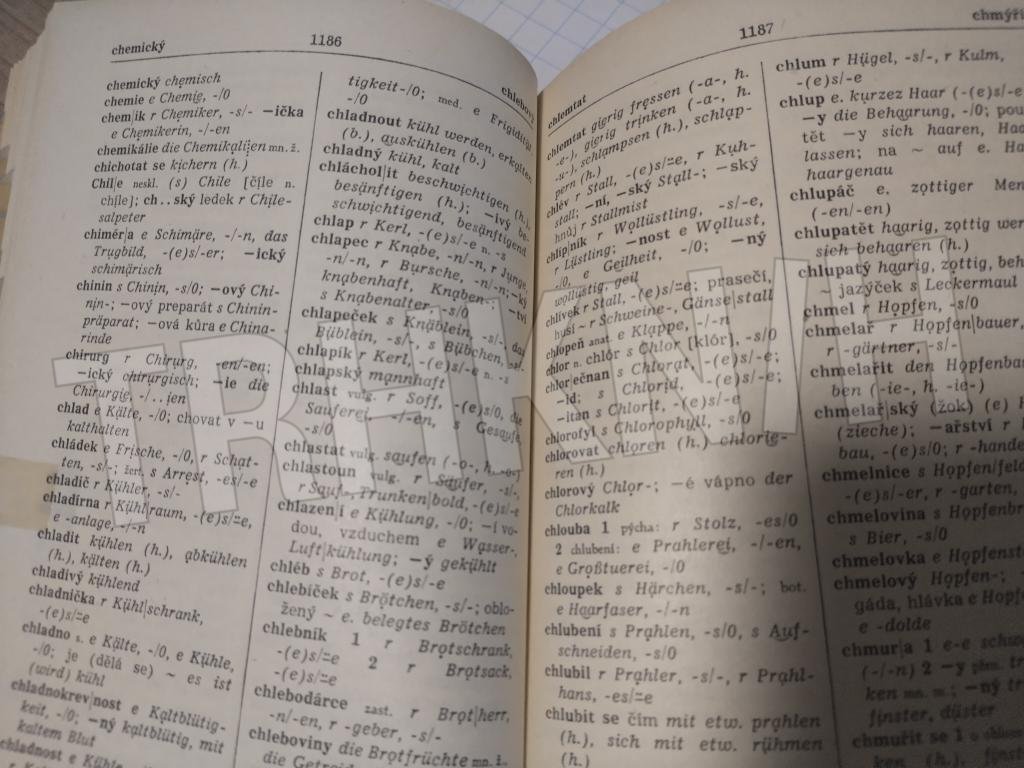 chemický
1186
chemický chemisch
chemie e Chemie, -/0
chem|ik r Chemiker, -s/- —ička
e Chemikerin, -/-en
chemikálie die Chemikalien mn. ž.
chichotat se kichern (h.)
Chil|e neskl. (s) Chile [čīle n.
chīle]; ch..ský ledek r Chile-
salpeter
chimér|a e Schimäre, -/-n, das
Trugbild, -(e)s/-er; —ický
schimärisch
chinin s Chinin, -s/0; —ový Chi-
nin-; —ový preparát s Chinin-
präparat; —ová kůra e China-
rinde
chirurg r Chirurg, -en/-en;
—ický chirurgisch; —ie die
Chirurgie, -/..ien
chlad e Kälte, -/0; chovat v —u
kalthalten
chládek e Frische, -/0, r Schat-
ten, -s/-; žert. s Arrest, -es/-e
chladič r Kühler, -s/-
chladírna r Kühl|raum, -(e)s/=e,
e -anlage, -/-n
chladit kühlen (h.), abkühlen
(h.), kälten (h.)
chladivý kühlend
chladnička r Kühl|schrank,
-(e)s/=e
chladno s. e Kälte, -/0, e Kühle,
-/0; je (dělá se) ~ es ist
(wird) kühl
chladnokrev|nost e Kaltblütig-
keit, -/0; —ný kaltblütig, mit
kaltem Blut
chladnost e Kühle
chlebovi
tigkeit -/0; med. e Frigidität
-/0
chladnout kühl werden, erkalten
(b.), auskühlen (b.)
chladný kühl, kalt
chláchol|it beschwichtigen (h.),
besänftigen (h.); —ivý be-
schwichtigend, besänftigend
chlap r Kerl, -(e)s/-e n. -s
chlapec r Knabe, -n/-n, r Junge,
-n/-n, r Bursche, -n/-n; —ký
knabenhaft, Knaben-; —tví
s Knabenalter, -s/0
chlapeček s Knäblein, -s/-, das
Büblein, -s/-, s Bübchen,
chlapík r Kerl, -(e)s/-e n. -s
chlapský mannhaft
chlast vulg. r Soff, -(e)s/0, die
Sauferei, -/-en, s Gesaufe,
-s/0
chlastat vulg. saufen (-o-, h.
chlastoun vulg. r Säufer, -s/-,
r Trunken|bold, -(e)s/-e
chlazen|í e Kühlung, -/0; —í vo-
dou, vzduchem e Wasser-,
Luft|kühlung; —ý gekühlt
chléb s Brot, -(e)s/-e
chlebíček s Brötchen, -s/-; oblo-
žený ~ e. belegtes Brötchen
chlebník 1 r Brotschrank,
-(e)s/=e 2 r Brotsack,
-(e)s/=e
chlebodárce zast. r Brot|herr,
-n/-en, r -geber, -s/-
chleboviny die Brotfrüchte mn. ž.
die
chlemtat
1187
chmýří
chlemtat gierig fressen (-a-, h.
-e-), gierig trinken (-a-, h.
-u-), schlampsen (h.), schlap-
pern (h.)
chlév r Stall, -(e)s/=e, r Kuh-
stall; —ní, —ský Stall-; —ský
hnůj r Stallmist
chlíp|ník r Wollüstling, -s/-e,
r Lüstling; —nost e Wollust,
-/0, e Geilheit, -/0; —ný
wollüstig, geil
chlívek r Stall, -(e)s/=e; prasečí,
husí ~ r Schweine-, Gänse|stall
chlopeň anat. e Klappe, -/-n
chlor n. chlór s Chlor [klór], -s/0
chlor|ečnan s Chlorat, -(e)s/-e;
—id s Chlorid, -(e)s/-e;
—itan s Chlorit, -(e)s/-e
chlorofyl s Chlorophyll, -s/0
chlorovat chloren (h.) chlorie-
ren (h.)
chlorový Chlor-; —é vápno der
Chlorkalk
chlouba 1 pýcha: r Stolz, -es/0
2 chlubení: e Prahlerei, -/-en,
e Großtuerei, -/0
chloupek s Härchen, -s/-; bot.
e Haarfaser, -/-n
chlubení s Prahlen, -s/0, s Auf-
schneiden, -s/0
chlubil r Prahler, -s/-, r Prahl-
hans, -es/=e
chlubit se čím mit etw. prahlen
(h.), sich mit etw. rühmen
(h.)
chlum r Hügel, -s/-, r Kulm,
-(e)s/-e
chlup e. kurzes Haar (-(e)s/-e
—y die Behaarung, -/0; pou
tět —y sich haaren, Haa
lassen; na ~ auf e. Ha
haargenau
chlupáč e. zottiger Men
(-en/-en)
chlupatět haarig, zottig wer
sich behaaren (h.)
chlupatý haarig, zottig, beh
~ jazýček s Leckermaul
chmel r Hopfen, -s/0
chmelař r Hopfen|bauer,
r -gärtner, -s/-
chmelařit den Hopfenbau
ben (-ie-, h. -ie-)
chmelař|ský (žok) (e) H
(zieche); —ařství r H
bau, -(e)s/0; r -hande
chmelnice s Hopfen|feld
-(e)s/-er, r -garten,
chmelovina s Hopfenbr
s Bier, -s/0
chmelovka e Hopfenst
chmelový Hopfen-;
gáda, hlávka e Hopf
e -dolde
chmur|a 1 e-e schw
(-/-n) 2 —y přen. tr
ken mn. m.; —ný tr
finster, düster
chmuřit se 1 o obloze
ken (h.), finst
TRHKNIH